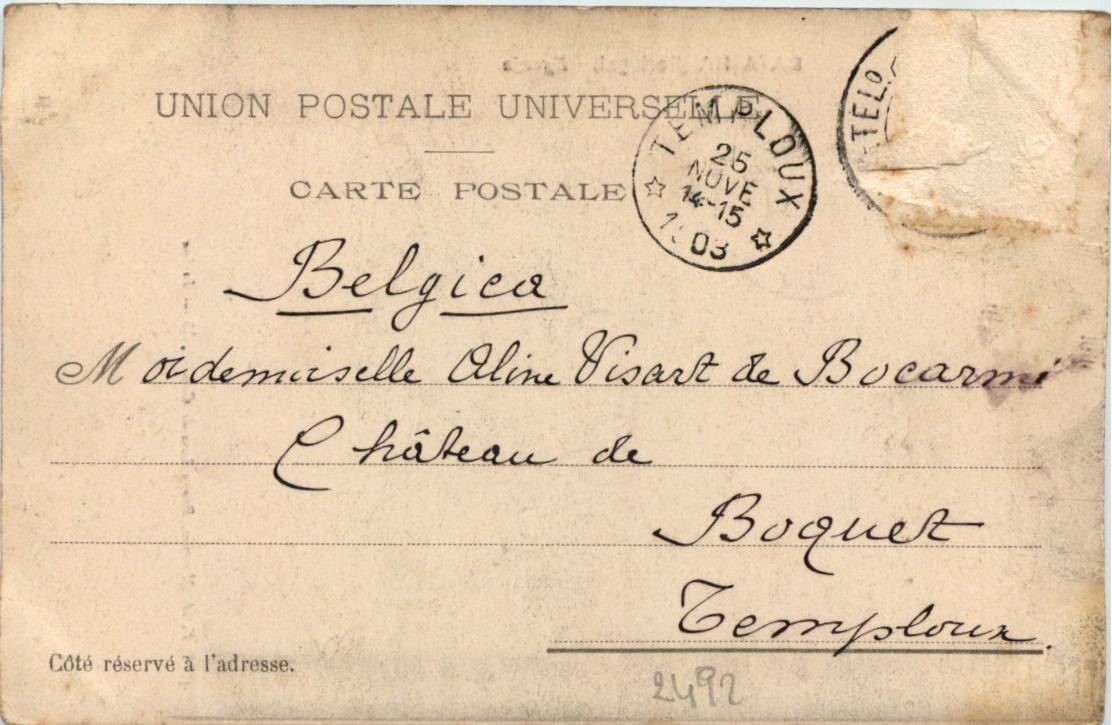 UNION POSTALE UNIVERSELLE
CARTE POSTALE
TEMPLOUX
25
NOVE
14-15
1903
TELO
Belgica
Mademoiselle Aline Visart de Bocarmé
Château de
Boquet
Temploux
Côté réservé à l'adresse.
2492